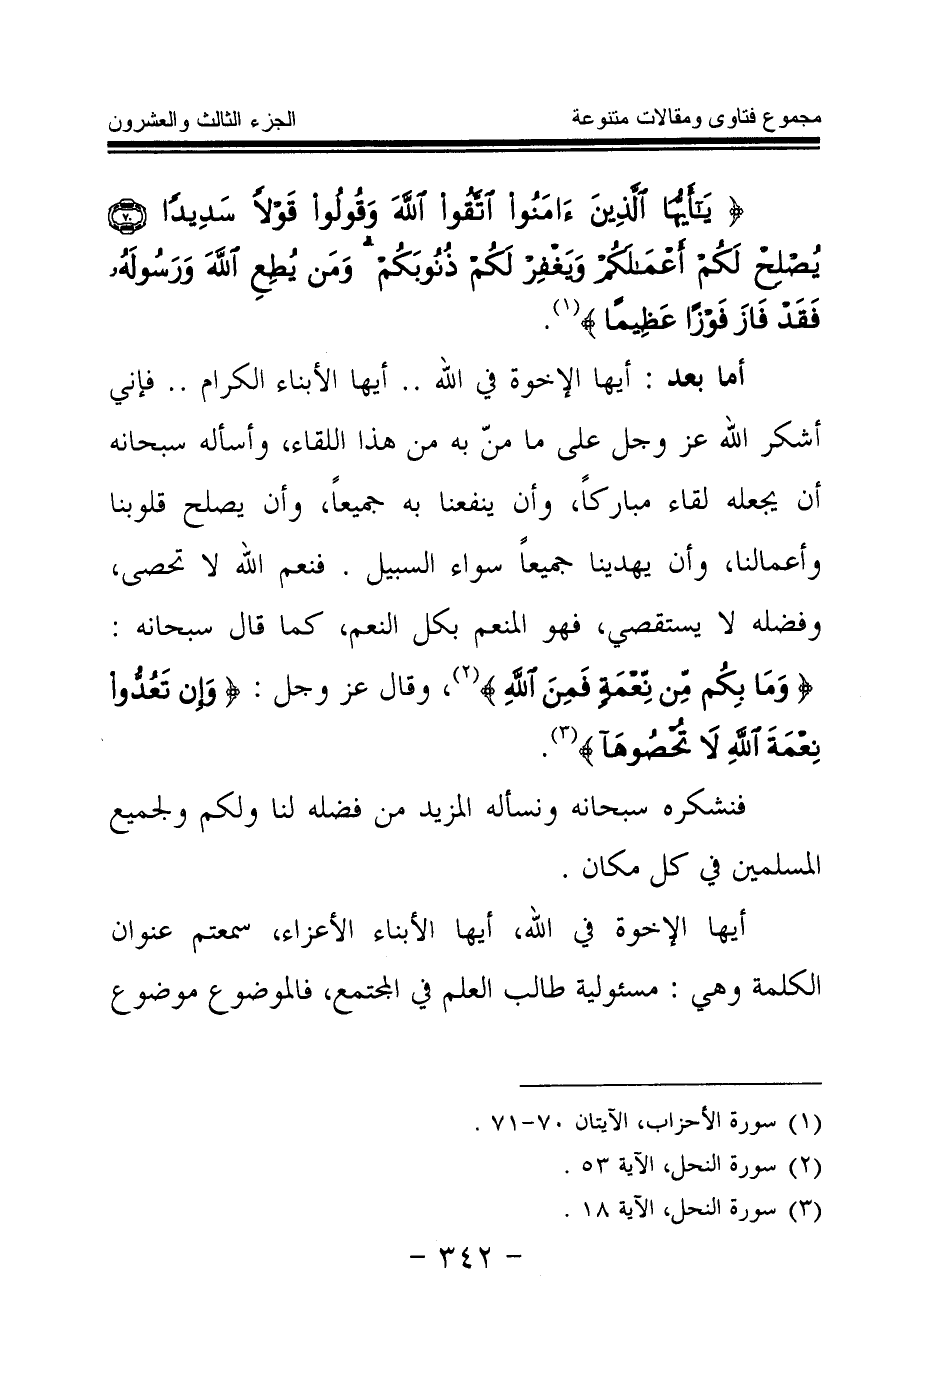 مجموع فتاوى ومقالات متنوعة الجزء الثالث والعشرون
﴿ يَـٰٓأَيُّهَا ٱلَّذِينَ ءَامَنُوا۟ ٱتَّقُوا۟ ٱللَّهَ وَقُولُوا۟ قَوْلًا سَدِيدًا ۝٧٠
يُصْلِحْ لَكُمْ أَعْمَـٰلَكُمْ وَيَغْفِرْ لَكُمْ ذُنُوبَكُمْ ۗ وَمَن يُطِعِ ٱللَّهَ وَرَسُولَهُۥ
فَقَدْ فَازَ فَوْزًا عَظِيمًا ﴾(١).
أما بعد : أيها الإخوة في الله .. أيها الأبناء الكرام .. فإني
أشكر الله عز وجل على ما منّ به من هذا اللقاء، وأسأله سبحانه
أن يجعله لقاء مباركاً، وأن ينفعنا به جميعاً، وأن يصلح قلوبنا
وأعمالنا، وأن يهدينا جميعاً سواء السبيل . فنعم الله لا تحصى،
وفضله لا يستقصي، فهو المنعم بكل النعم، كما قال سبحانه :
﴿ وَمَا بِكُم مِّن نِّعْمَةٍ فَمِنَ ٱللَّهِ ﴾(٢)، وقال عز وجل : ﴿ وَإِن تَعُدُّوا۟
نِعْمَةَ ٱللَّهِ لَا تُحْصُوهَآ ﴾(٣).
فنشكره سبحانه ونسأله المزيد من فضله لنا ولكم ولجميع
المسلمين في كل مكان .
أيها الإخوة في الله، أيها الأبناء الأعزاء، سمعتم عنوان
الكلمة وهي : مسئولية طالب العلم في المجتمع، فالموضوع موضوع
(١) سورة الأحزاب، الآيتان ٧٠–٧١ .
(٢) سورة النحل، الآية ٥٣ .
(٣) سورة النحل، الآية ١٨ .
– ٣٤٢ –